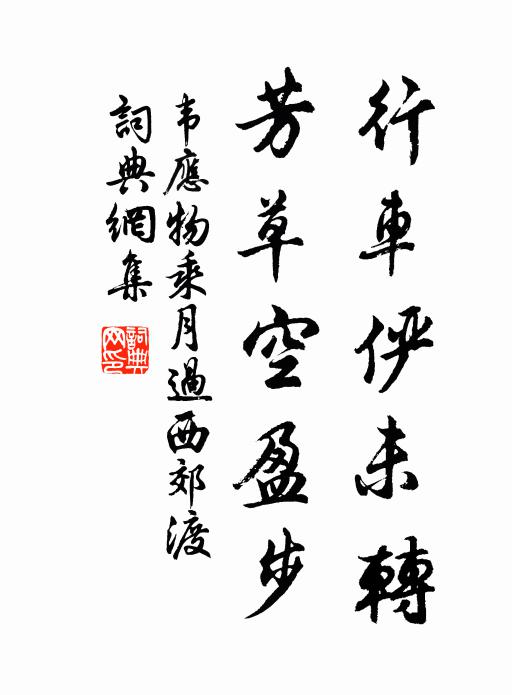 行車儼未轉
芳草空盈步
韦應物乘月過西郊渡
詞典網集
詞典網印